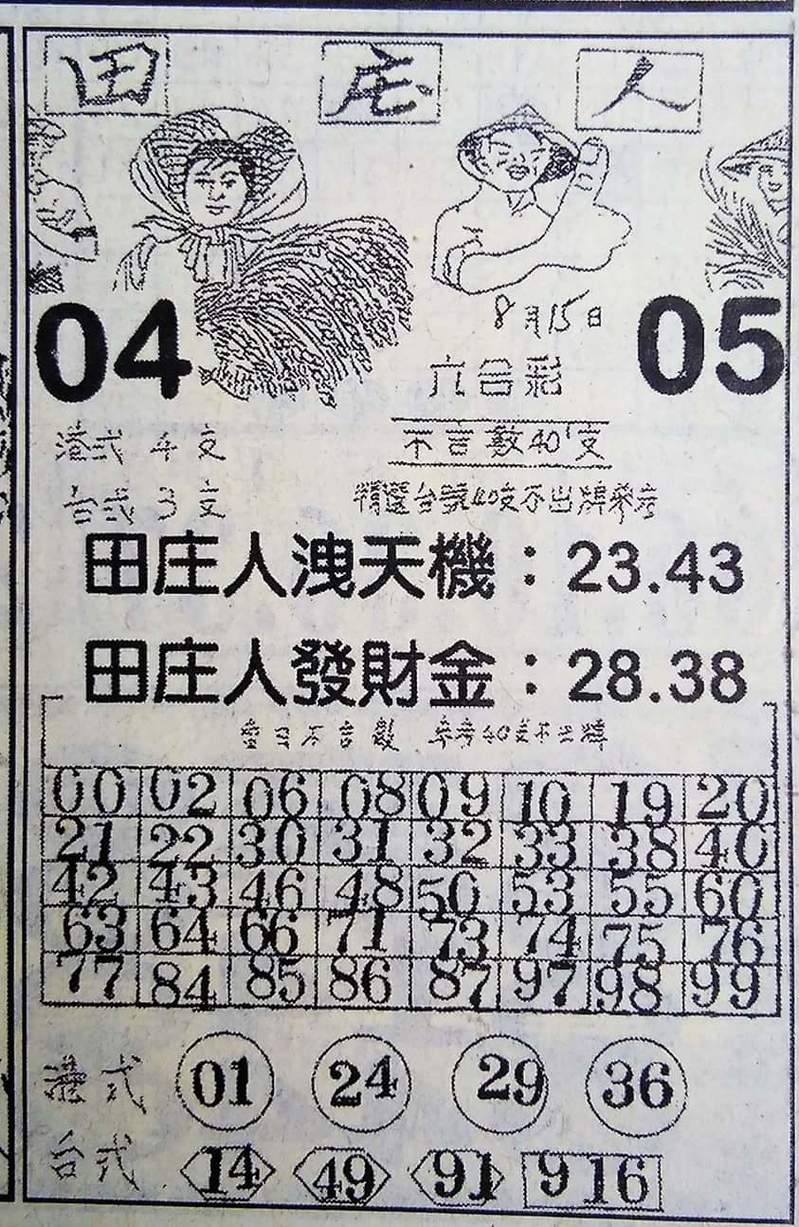 田 庄 人
04
8月15日
05
六合彩
港式 4支
不吉數40支
台式 3支
精選台號40支不出牌參考
田庄人洩天機：23.43
田庄人發財金：28.38
當日不吉數 參考40支不出牌
00 02 06 08 09 10 19 20
21 22 30 31 32 33 38 40
42 43 46 48 50 53 55 60
63 64 66 71 73 74 75 76
77 84 85 86 87 97 98 99
港式 01 24 29 36
台式 14 49 91 916